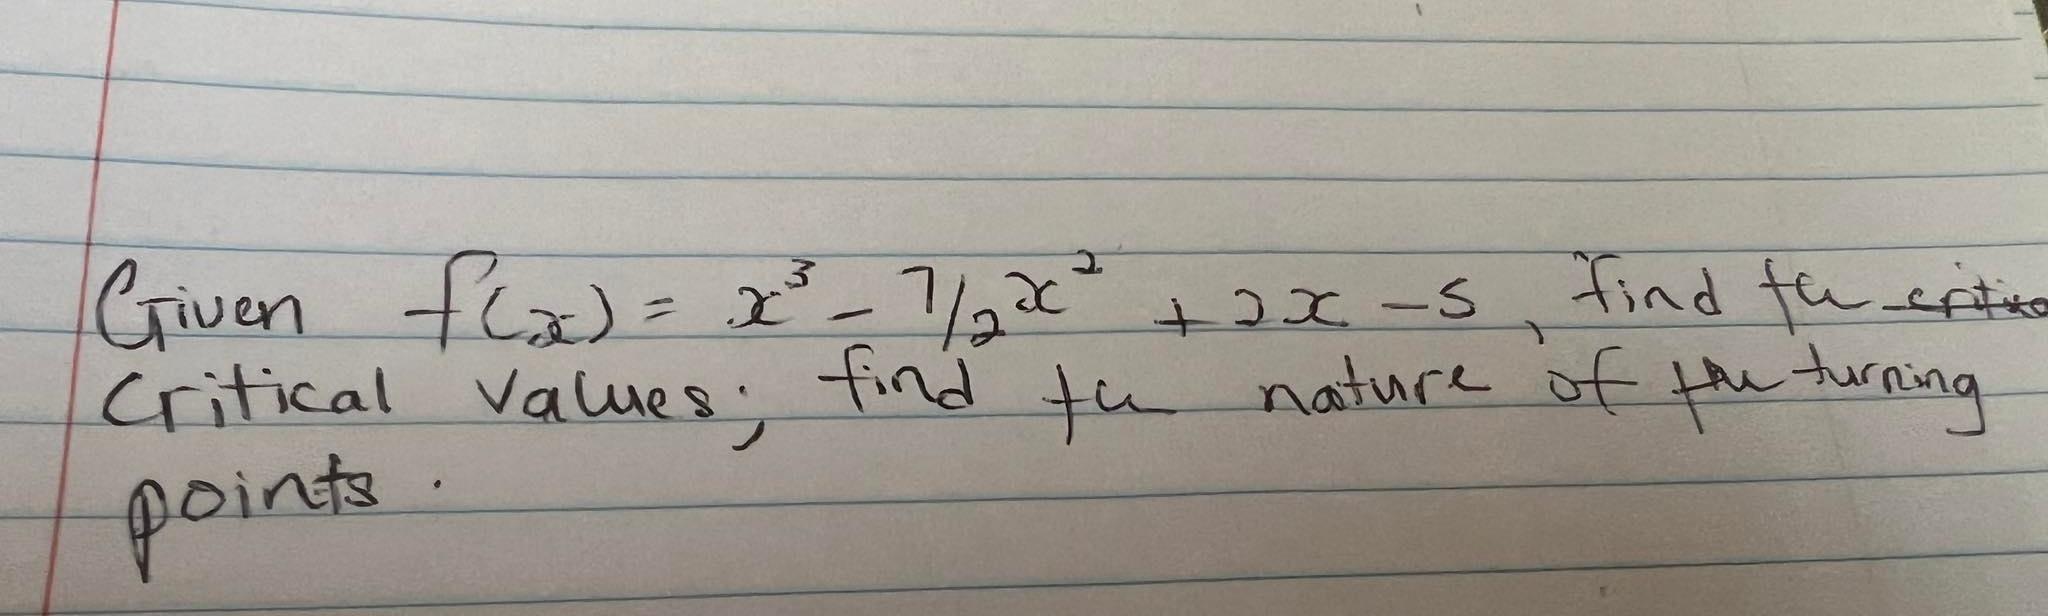 Given f(x) = x³ - 7/2x² + 2x - 5, find the critica
Critical values; find the nature of the turning
points.